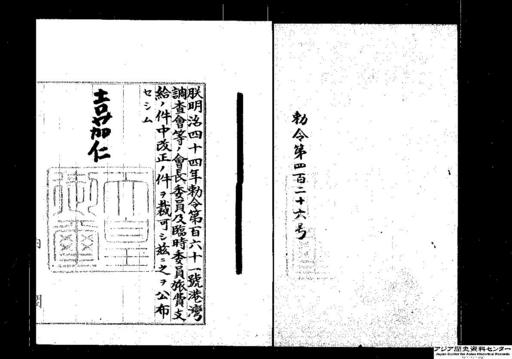 勅令第四百二十六号
朕明治四十四年勅令第百六十一號港灣
調査會等ノ會長委員及臨時委員旅費支
給ノ件中改正ノ件ヲ裁可シ茲ニ之ヲ公布
セシム
嘉仁
天皇御璽
内閣
アジア歴史資料センター
Japan Center for Asian Historical Records